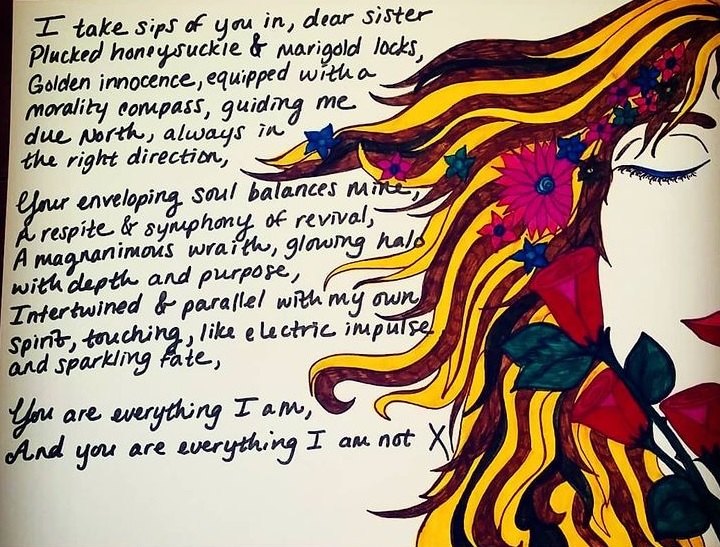 I take sips of you in, dear sister
Plucked honeysuckle & marigold locks,
Golden innocence, equipped with a
morality compass, guiding me
due North, always in
the right direction,
Your enveloping soul balances mine,
A respite & symphony of revival,
A magnanimous wraith, glowing halo
with depth and purpose,
Intertwined & parallel with my own
spirit, touching, like electric impulse
and sparkling fate,
You are everything I am,
And you are everything I am not X